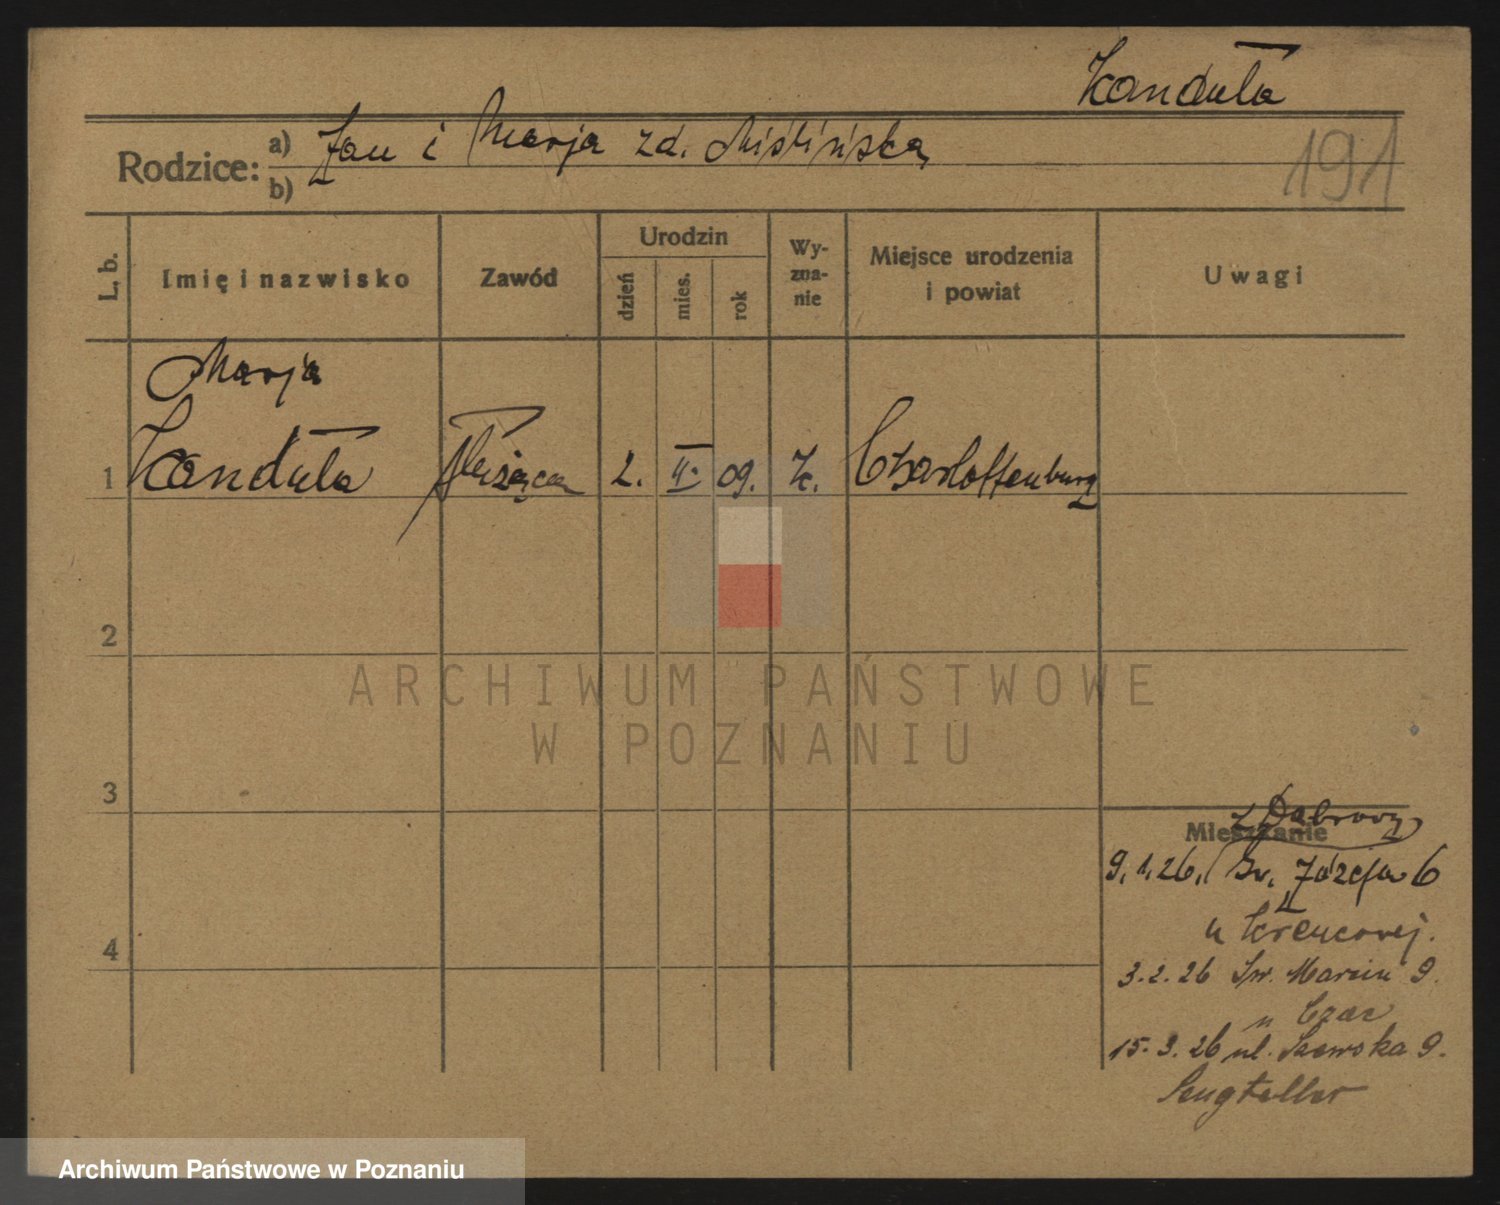 Kanduła
Rodzice:
a) Jan i Marja zd. Miślińska
b)
191
L. b.
Imię i nazwisko
Zawód
Urodzin
dzień
mies.
rok
Wy-
zna-
nie
Miejsce urodzenia
i powiat
Uwagi
Marja
1 Kanduła służąca 2. II. 09. k. Charlottenburg
2
3
4
Mieszkanie
z Dąbrowy
9.1.26. Św. Józefa 6
u
3.2.26 Św. Marcin 9.
u Czac
15.3.26 ul. 9.
ARCHIWUM PAŃSTWOWE
W POZNANIU
Archiwum Państwowe w Poznaniu